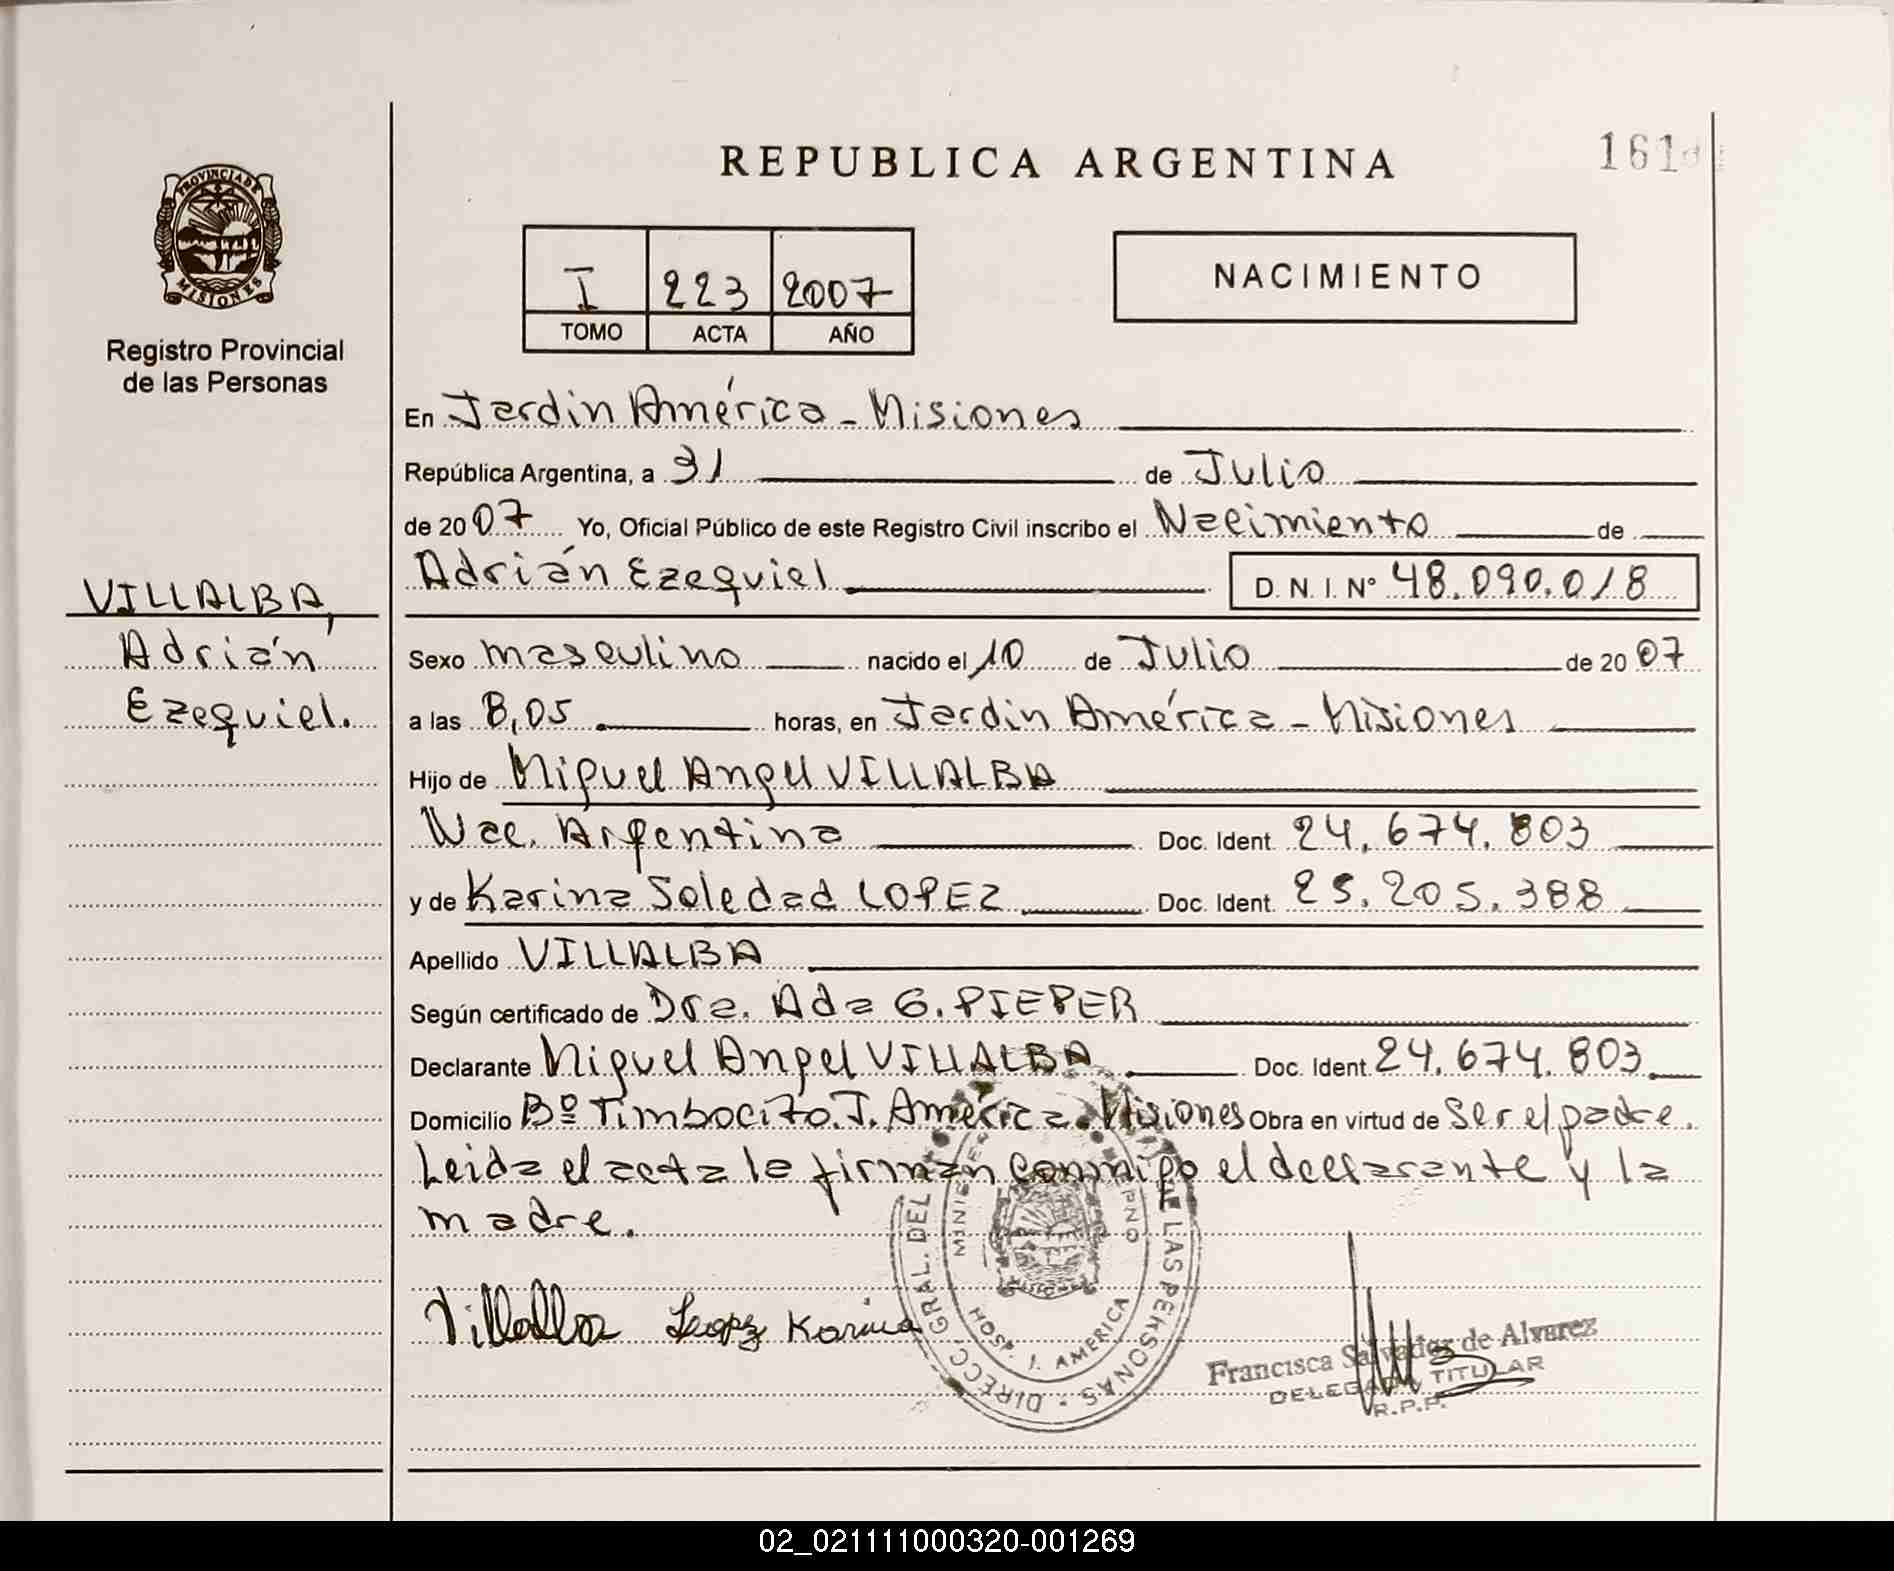 REPUBLICA ARGENTINA
161
PROVINCIA DE
MISIONES
Registro Provincial
de las Personas
I 223 2007
TOMO ACTA AÑO
NACIMIENTO
En Jardin América - Misiones
República Argentina, a 31 de Julio
de 2007 Yo, Oficial Público de este Registro Civil inscribo el Nacimiento de
Adrián Ezequiel D. N. I. Nº 48.090.018
VILLALBA,
Adrián
Ezequiel.
Sexo masculino nacido el 10 de Julio de 2007
a las 8,05 horas, en Jardin América - Misiones
Hijo de Miguel Angel VILLALBA
Nac. Argentina Doc. Ident. 24.674.803
y de Karina Soledad LOPEZ Doc. Ident. 25.205.388
Apellido VILLALBA
Según certificado de Dra. Ada G. PIEPER
Declarante Miguel Angel VILLALBA Doc. Ident. 24.674.803
Domicilio Bº Timbocito. J. América. Misiones Obra en virtud de ser el padre.
Leida el acta la firman conmigo el declarante y la
madre.
Villalba Lopez Karina
DIRECC. GRAL. DEL LAS PERSONAS
HOSP. J. AMERICA
Francisca Salvador de Alvarez
DELEGADA TITULAR
R.P.P.
02_021111000320-001269